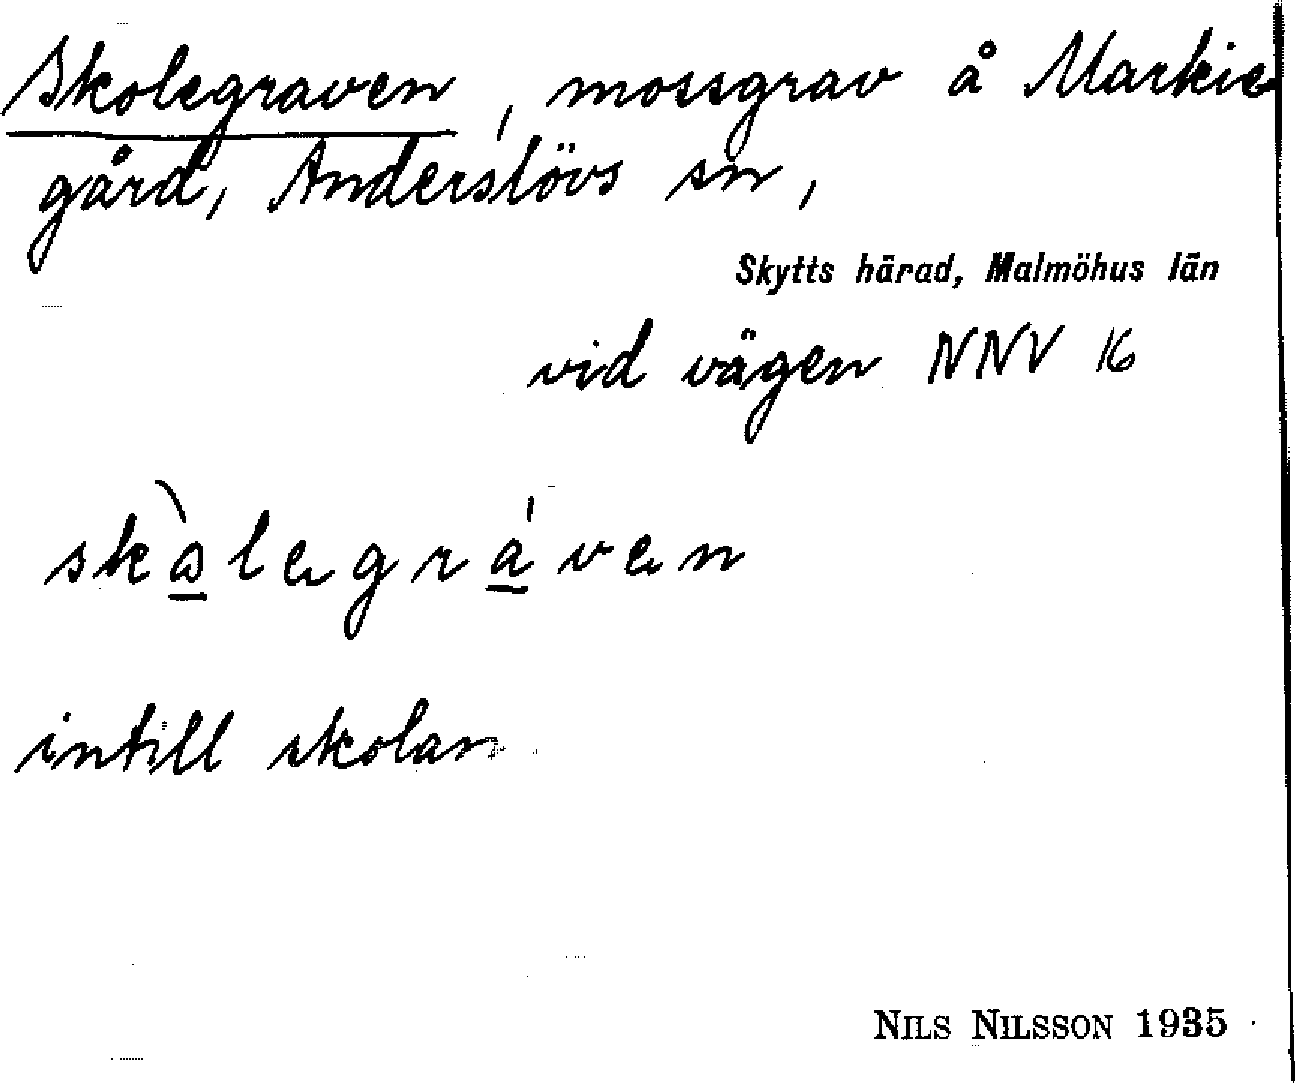 Skolegraven, mossgrav å Markie
gård, Anderslövs sn,
Skytts härad, Malmöhus län
vid vägen NNV 16
skòlegráven
intill skolan
NILS NILSSON 1935